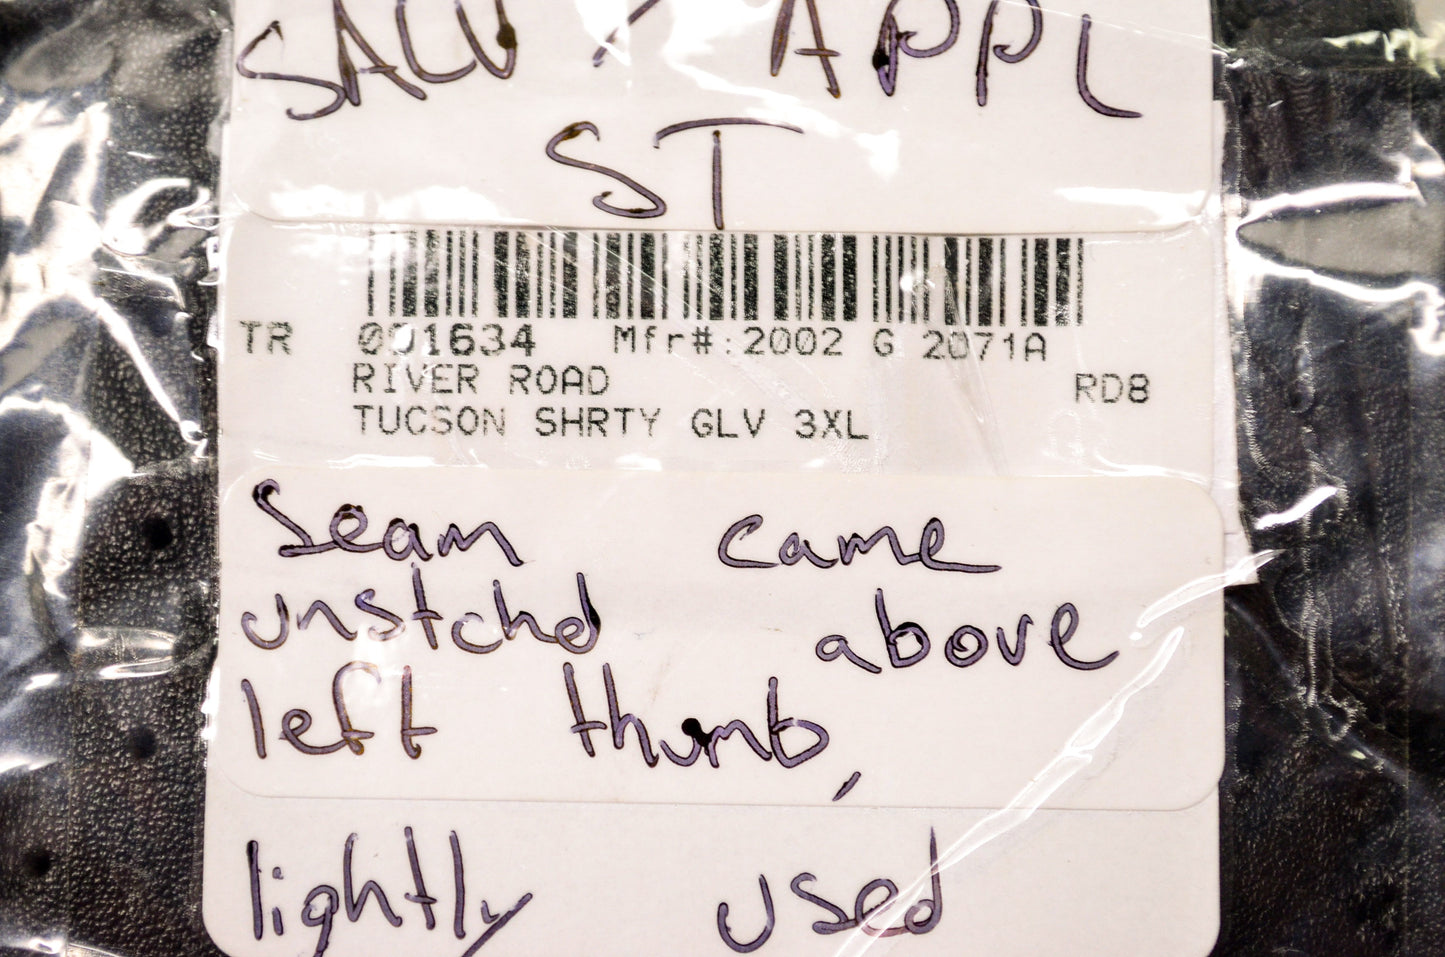 SALV - APPL
ST
TR 001634 Mfr#:2002 G 2071A
RIVER ROAD RD8
TUCSON SHRTY GLV 3XL
Seam came
unstchd above
left thumb,
lightly used